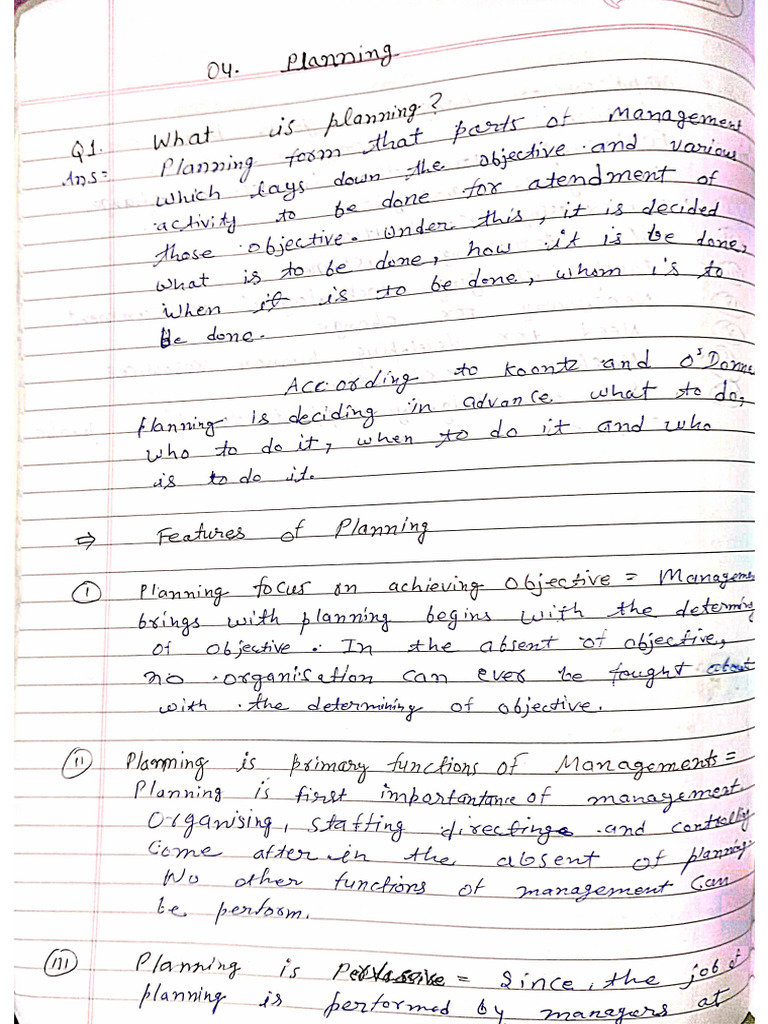 04. Planning
Q1. What is planning?
Ans= Planning form that parts of Management
which lays down the objective and various
activity to be done for atendment of
those objective. Under this, it is decided
what is to be done, how it is be done,
when it is to be done, whom is to
be done.
According to Koontz and O's Donne
Planning is deciding in advance what to do,
who to do it, when to do it and who
is to do it.
⇒ Features of Planning
(i) Planning focus on achieving objective = Manageme
brings with planning begins with the determin
of objective. In the absent of objective,
no organisation can ever be fought about
with the determining of objective.
(ii) Planning is primary functions of Managements =
Planning is first importantance of management.
Organising, staffing directing and controlly
come after in the absent of planning.
No other functions of management can
be perform.
(iii) Planning is Pervasive = Since, the job of
planning is performed by managers at